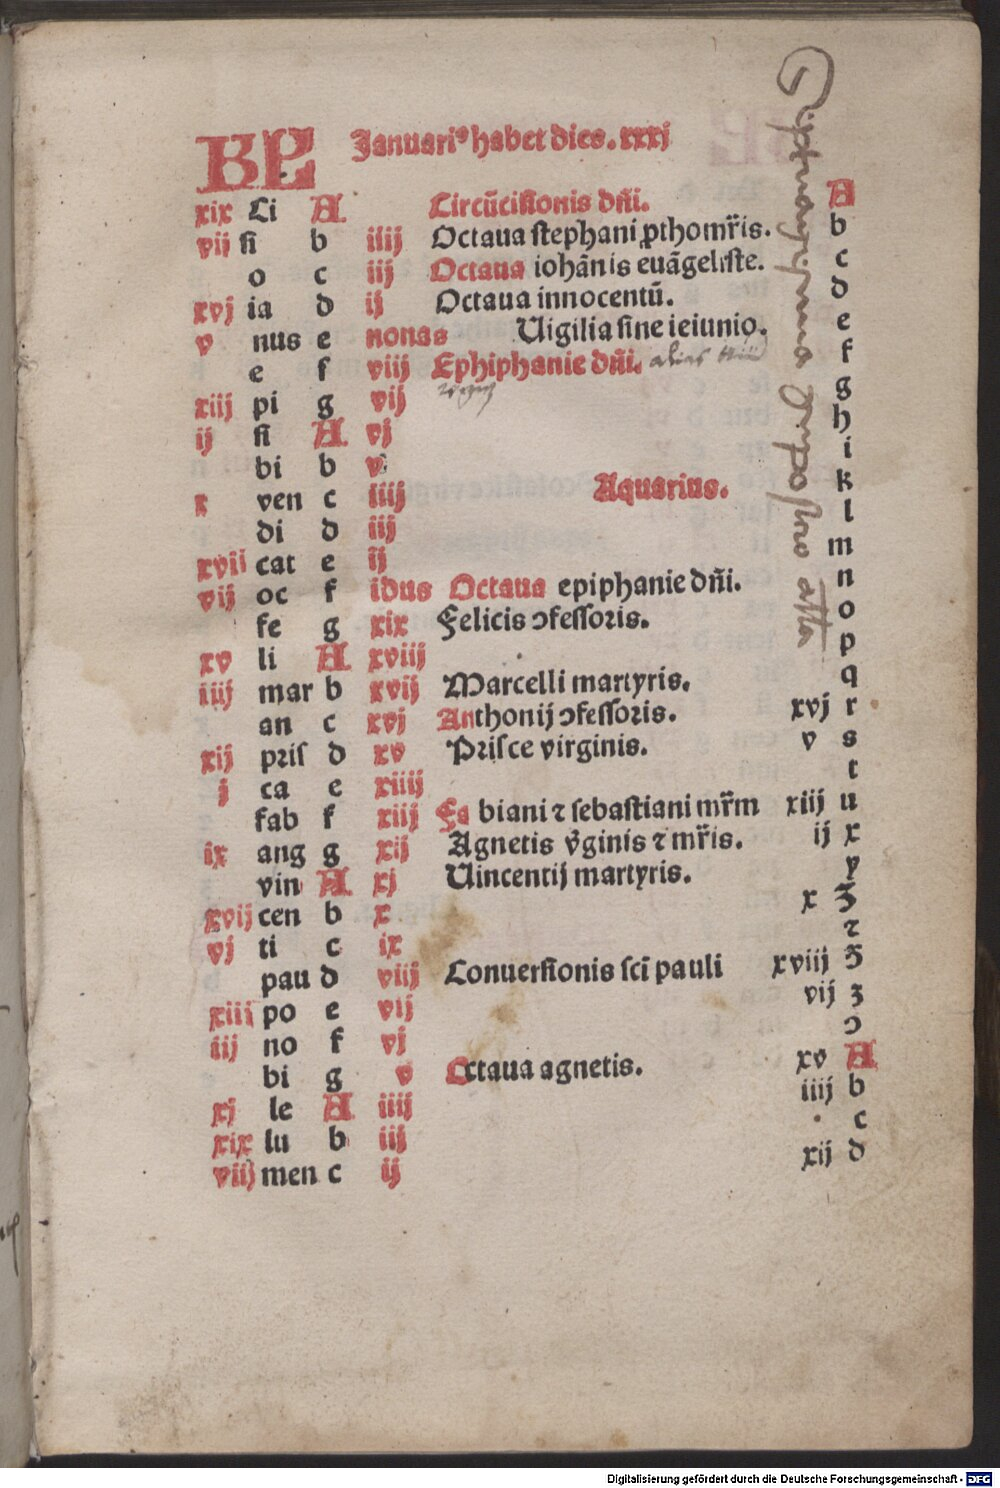 KL Januariꝰ habet dies. xxxj
xix Ci A Circūcisionis dn̄i. A
vij si b iiij Octaua stephani ꝓthomr̄is. b
o c iij Octaua iohānis euāgeliste. c
xvj ia d ij Octaua innocentū. d
v nus e nonas Uigilia sine ieiunio. e
e f viij Ephiphanie dn̄i. alias f
xiij pi g vij g
ij si A vj h
bi b v i
x ven c iiij Aquarius. k
di d iij l
xvii cat e ij m
vij oc f idus Octaua epiphanie dn̄i. n
fe g xix Felicis ɔfessoris. o
xv li A xviij p
iiij mar b xvij Marcelli martyris. q
an c xvj Anthonij ɔfessoris. xvj r
xij pris d xv Prisce virginis. v s
j ca e xiiij t
fab f xiij Fabiani ⁊ sebastiani mr̄m xiij u
ix ang g xij Agnetis v̄ginis ⁊ mr̄is. ij x
vin A xj Uincentij martyris. y
xvij cen b x x ʒ
vj ti c ix ⁊
pau d viij Conuersionis sci̅ pauli xviij ʒ
xiii po e vij vij ʒ
iij no f vj ɔ
bi g v Octaua agnetis. xv A
xj le A iiij iiij b
xix lu b iij c
viij men c ij xij d
Digitalisierung gefördert durch die Deutsche Forschungsgemeinschaft - DFG